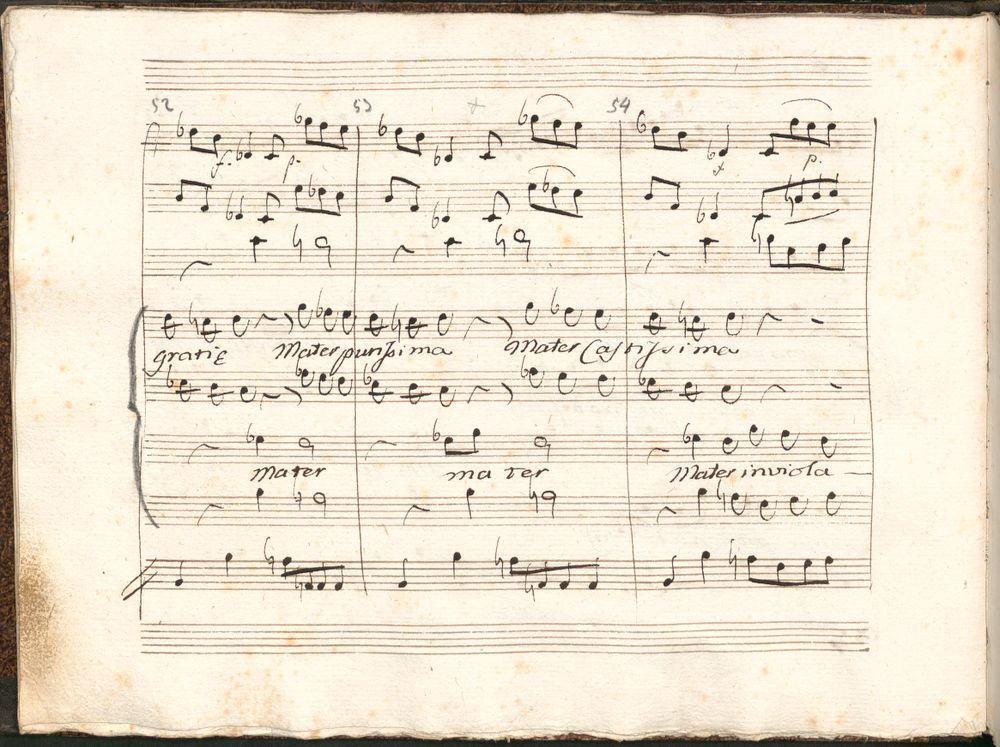 52 53 54
f. p. p.
gratię Mater purissima Mater Castissima
Mater mater Mater inviola